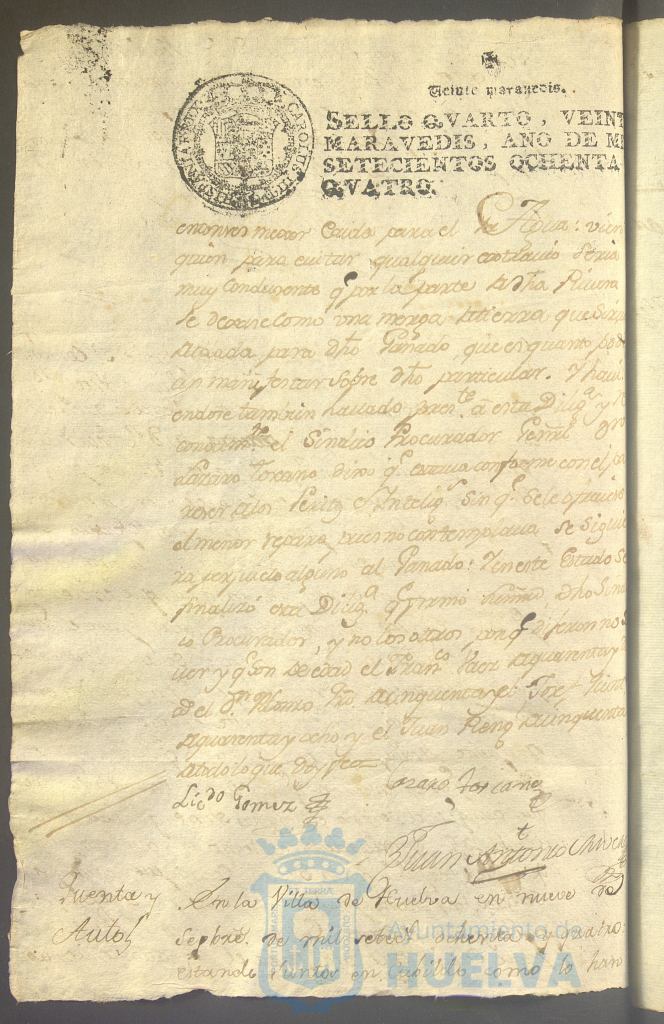 Veinte maravedis.
SELLO QVARTO, VEINT
MARAVEDIS, ANO DE MI
SETECIENTOS OCHENTA
QVATRO.
CAROLUS III
para el Agua: vien
quien para evitar qualquier extravio seria
muy Conducente q.e por la parte de dha Rivera
se dexase como una merga de tierra, que sirv
para dho Ganado, que es quanto pued
an manifestar sobre dho particular. Y havi
endose tambien hallado pres.te a esta Dilig.a y
el Sindico Procurador Gen.l
Lazaro Toscano dixo q.e estava conforme con el pa
recer de los Peritos é Intelig.s sin q.e se le ofreciese
el menor reparo, pues no contemplava se siguie
ra perjuicio alguno al Ganado: Y en este Estado se
finalizó esta Dilig.a q.e firmó su md dho Sindi
co Procurador, y no los otros porq.e dijeron no s
ver y q.e son de edad el Fran.co Vaez de quarenta y
el Alonso de cinquenta y el Josef
de quarenta y ocho y el Juan de cinquenta
de todo lo que, doy fee
Lic.do Gomez
Lazaro Toscano
Juan Ant.t
Cuenta y
Autos
En la Villa de Huelva en nueve de
Sepbre. de mil setec.s ochenta y quatro:
estando Juntos en Cavildo como lo han
Ayuntamiento de
HUELVA